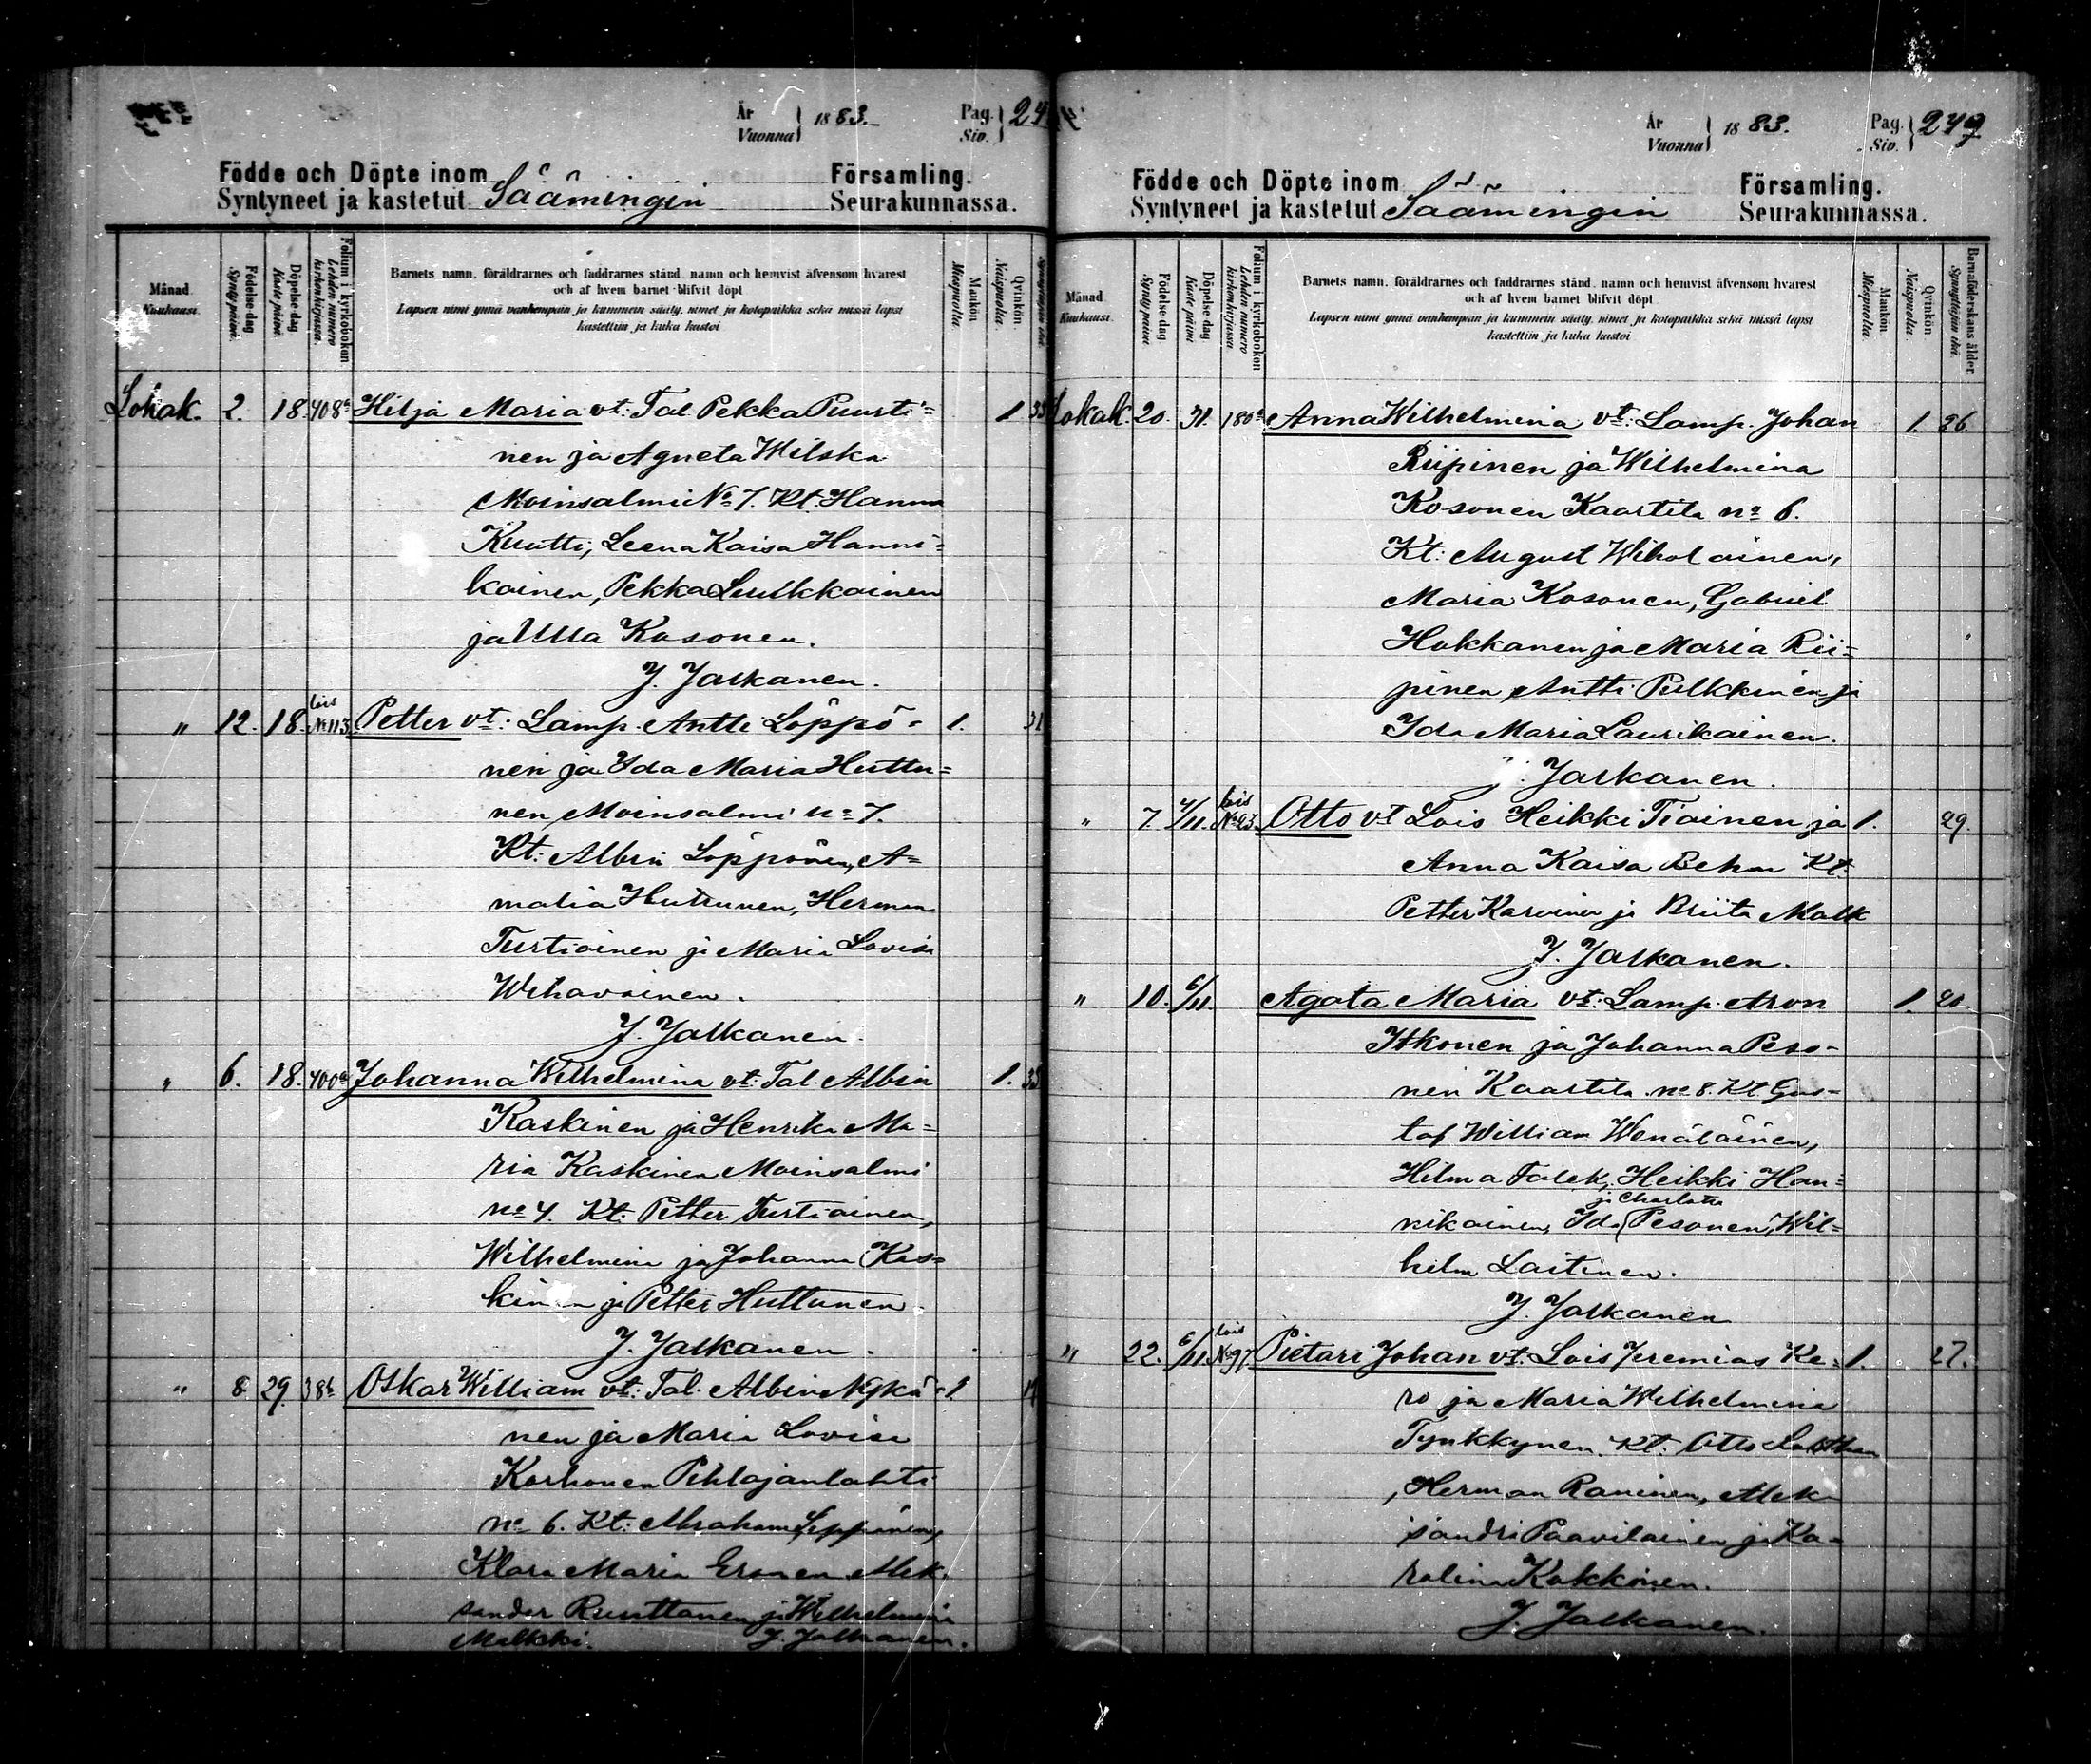 År
Vuonna 1883.
Pag.
Siv. 24
Födde och Döpte inom Församling.
Syntyneet ja kastetut Säämingin Seurakunnassa.
Månad
Kuukausi.
Födelse dag
Synty päivä.
Döpelse dag
Kaste päivä.
Folium i kyrkobokon
Lehden numero
kirkonkirjassa.
Barnets namn, föräldrarnes och faddrarnes stånd, namn och hemvist äfvensom hvarest
och af hvem barnet blifvit döpt
Lapsen nimi ynnä vanhempain ja kummein sääty, nimet ja kotopaikka sekä missä lapsi
kastettiin ja kuka kastoi
Mankön
Miespuolta
Qvinkön
Naispuolta.
Lokak. 2. 18. 408a Hilja Maria vt: Tal Pekka Puurti= 1 35
nen ja Agneta Wilska
Moinsalmi No 7. Kt. Hanna
Kuutti, Leena Kaisa Hanni=
kainen, Pekka Luukkainen
ja Ulla Kosonen.
J. Jalkanen.
" 12. 18. lois No 113 Petter vt: Lamp. Antti Löppö= 1. 21
nen ja Ida Maria Huttu=
nen Moinsalmi no 7.
Kt: Albin Löppönen, A=
malia Huttunen, Herman
Turtiainen ja Maria Lovisa
Wihavainen.
J. Jalkanen.
" 6. 18. 400a Johanna Wilhelmina vt: Tal. Albin 1.
Kaskinen ja Henrika Ma=
ria Kaskinen Moinsalmi
no 4. Kt: Petter Turtiainen,
Wilhelmina ja Johanna Kas=
kinen ja Petter Huttunen.
J. Jalkanen.
" 8. 29. 38b Oskar William vt: Tal. Albin Nykä= 1.
nen ja Maria Lovisa
Korhonen Pihlajanlahti
no 6. Kt: Abraham Leppänen,
Klara Maria Eronen Alek=
sander Ruuttanen ja Wilhelmina
Malkki. J. Jalkanen.
År
Vuonna 1883.
Pag.
Siv. 249
Födde och Döpte inom Församling.
Syntyneet ja kastetut Säämingin Seurakunnassa.
Månad
Kuukausi.
Födelse dag
Synty päivä.
Döpelse dag
Kaste päivä
Folium i kyrkobokon
Lehden numero
kirkonkirjassa
Barnets namn, föräldrarnes och faddrarnes stånd, namn och hemvist äfvensom hvarest
och af hvem barnet blifvit döpt
Lapsen nimi ynnä vanhempain ja kummein sääty, nimet ja kotopaikka sekä missä lapsi
kastettiin ja kuka kastoi
Mankön
Miespuolta.
Qvinkön
Naispuolta.
Barnaföderskans ålder.
Synnyttäjän ikä.
Lokak. 20. 31. 180a Anna Wilhelmina vt: Lamp. Johan 1. 26.
Riipinen ja Wilhelmina
Kosonen Kaartila no 6.
Kt: August Wiholainen,
Maria Kosonen, Gabriel
Hokkanen ja Maria Rii=
pinen, Antti Pulkkinen ja
Ida Maria Laurikainen.
J. Jalkanen.
" 7. 4/11. lois No 23. Otto vt Lois Heikki Tiainen ja 1. 29.
Anna Kaisa Behm Kt.
Petter Karvinen ja Briita Malk
J. Jalkanen.
" 10. 6/11. Agata Maria vt: Lamp. Aron 1. 20.
Itkonen ja Johanna Peso=
nen Kaartila no 8. Kt. Gus=
taf William Wenäläinen,
Hilma Falck, Heikki Han=
nikainen, Ida ja Charlotta Pesonen, Wil=
helm Laitinen.
J. Jalkanen
" 22. 6/11. lois No 97. Pietari Johan vt. Lois Jeremias Ke= 1. 27.
ro ja Maria Wilhelmina
Tynkkynen. Kt. Otto
, Herman Raninen, Alek=
sandri Paavilainen ja Ka=
rolina Kokkonen.
J. Jalkanen.